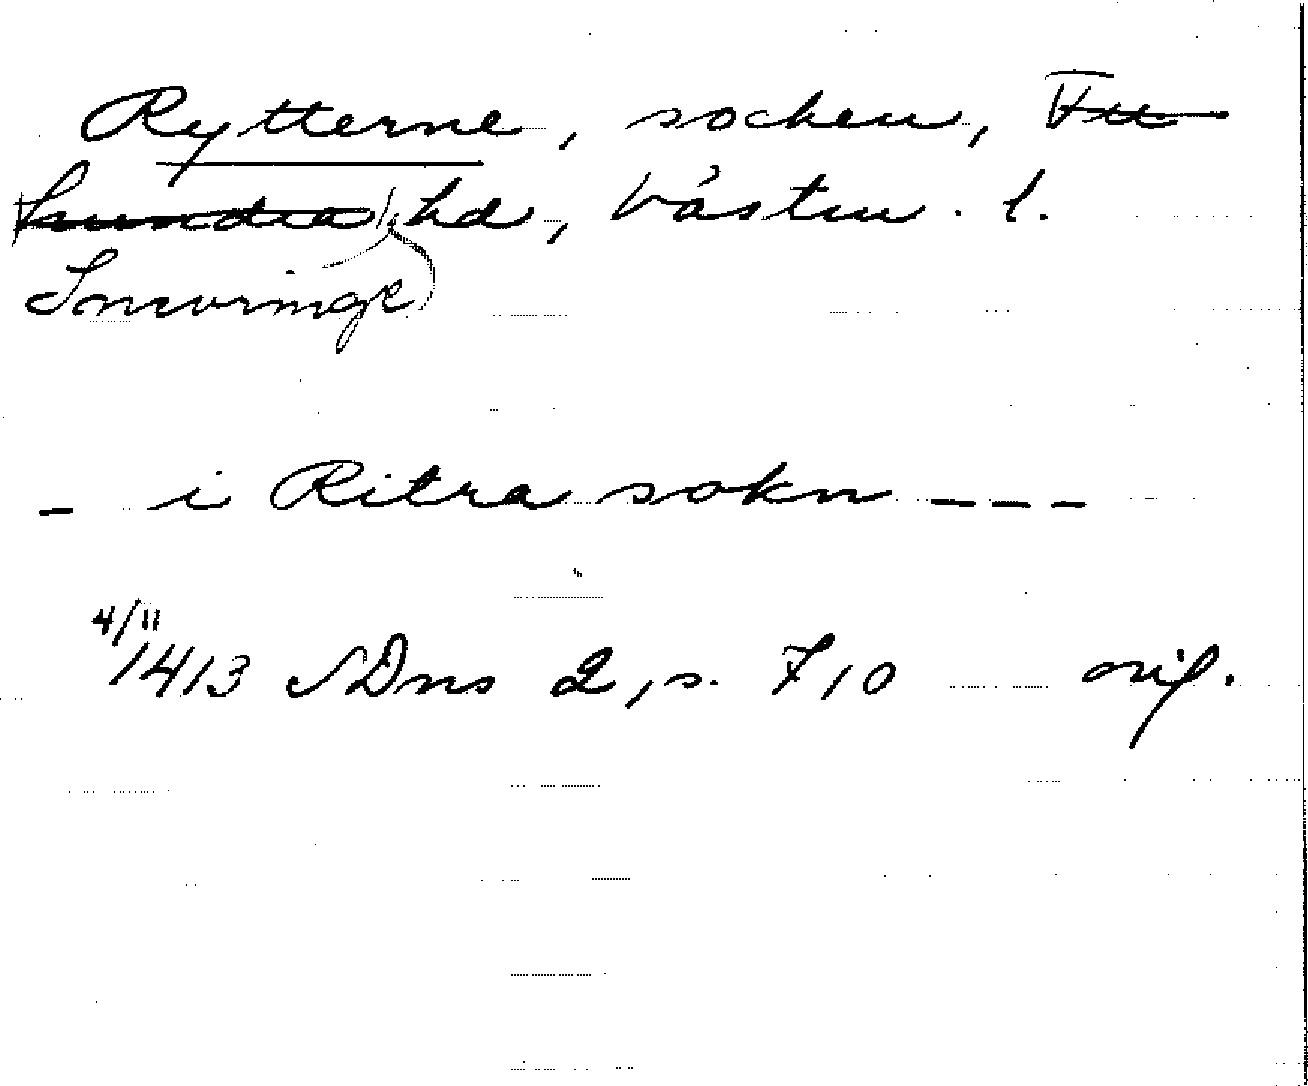 Rytterne, socken, Ytt
tundra hd, Västm. l.
Snevringe
- i Ritra sokn - - -
4/11
1413 SDns 2, s. 710 orig.